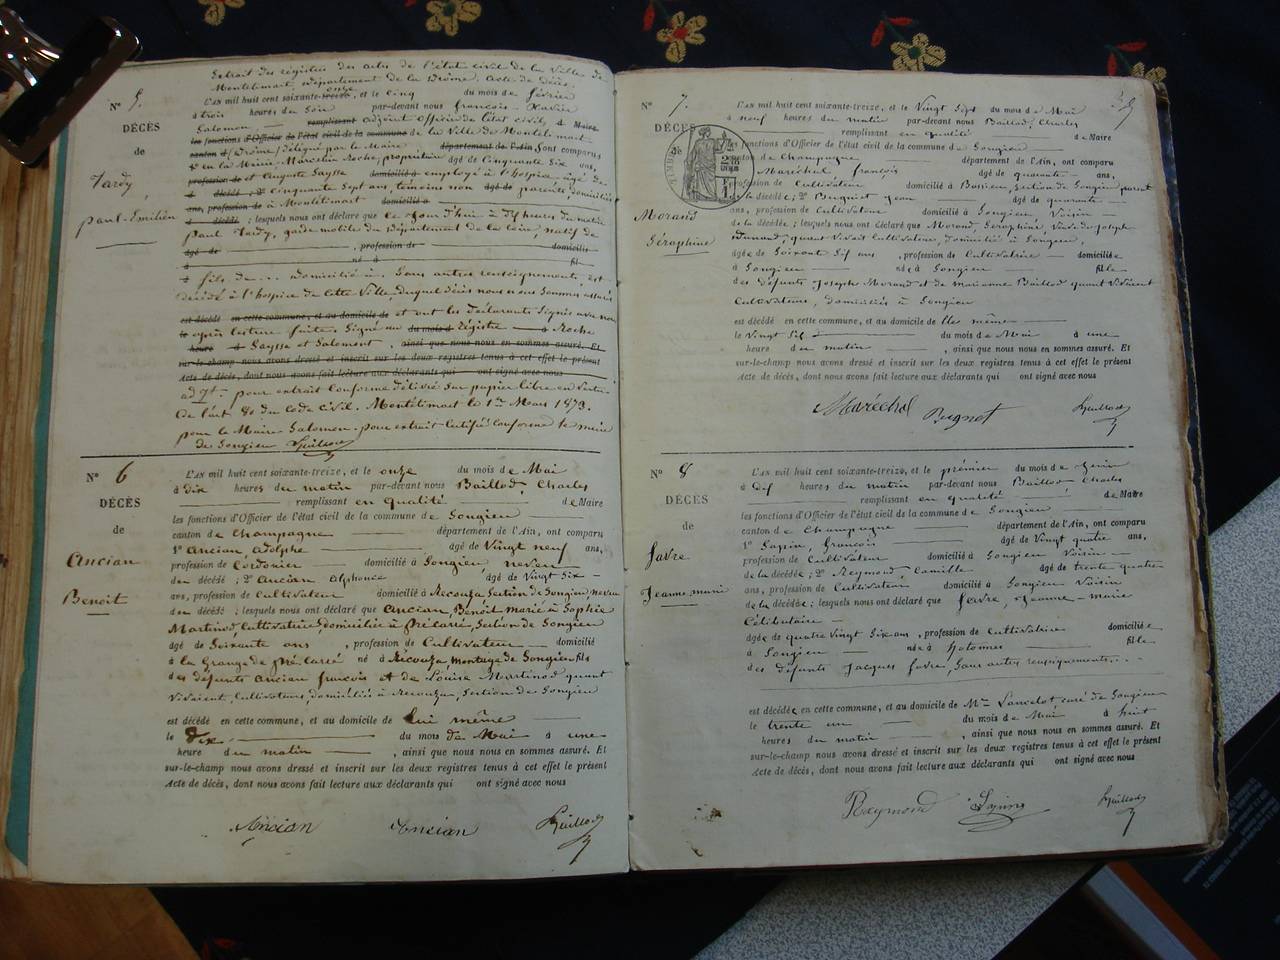 Extrait des régistres des actes de l'état civil de la Ville de
Montélimart, département de la Drôme, acte de décès.
N° 5.
DÉCÈS
de
Tardy,
Paul-Emilien
L'AN mil huit cent soixante-treize, et le cinq du mois de février
à trois heures du soir par-devant nous françois-Xavier
Salomon remplissant adjoint officier de l'état civil, d Maire
les fonctions d'Officier de l'état civil de la commune de la Ville de Montélimart
canton d (Drôme) délégué par le Maire département de l'Ain sont comparus
1° en la Mairie Marcelin Roche, propriétaire âgé de Cinquante Six ans,
profession de et Auguste Saysse domicilié à employé à l'hospice âgé de
d décédé; 2° Cinquante Sept ans, témoins non âgé de parents, domiciliés
ans, profession de à Montélimart domicilié à
d décédé; lesquels nous ont déclaré que le jour d'hui à heures du matin
Paul Tardy, garde mobile du Département de la Loire, natif de
âgé de , profession de domicilié
à né à fil
d fils de ... domicilié à. Sans autres renseignements, est
décédé à l'hospice de cette Ville, duquel décès nous nous sommes assuré
est décédé en cette commune, et au domicile de et ont les déclarants signés avec nous
le après lecture faite. Signé au du mois d régistre à Roche
heure d Saysse et Salomon , ainsi que nous nous en sommes assuré. Et
sur-le-champ nous avons dressé et inscrit sur les deux registres tenus à cet effet le présent
Acte de décès, dont nous avons fait lecture aux déclarants qui ont signé avec nous
pour extrait conforme délivré sur papier libre en vertu
de l'art. 80 du code civil. Montélimart le 1er Mars 1873.
pour le Maire Salomon. pour extrait certifié conforme le maire
de Songieu Baillod
N° 6
DÉCÈS
de
Ancian
Benoît
L'AN mil huit cent soixante-treize, et le onze du mois de Mai
à dix heures du matin par-devant nous Baillod, Charles
remplissant en qualité de Maire
les fonctions d'Officier de l'état civil de la commune de Songieu
canton de Champagne département de l'Ain, ont comparu
1° Ancian, Adolphe âgé de Vingt neuf ans,
profession de Cordonier domicilié à Songieu neveu
du décédé; 2° Ancian Alphonse âgé de Vingt Six
ans, profession de Cultivateur domicilié à Recouza Section de Songieu, neveu
du décédé; lesquels nous ont déclaré que Ancian, Benoît marié à Sophie
Martinod, Cultivateur, domicilié à Pré Carré, Section de Songieu
âgé de Soixante ans , profession de Cultivateur domicilié
à la Grange de pré carré né à Récouza, montagne de Songieu fils
des défunts Ancian françois et de Louise Martinod quant
vivaient, Cultivateurs, domiciliés à Recouza, Section de Songieu
est décédé en cette commune, et au domicile de lui même
le dix du mois de Mai à une
heure du matin , ainsi que nous nous en sommes assuré. Et
sur-le-champ nous avons dressé et inscrit sur les deux registres tenus à cet effet le présent
Acte de décès, dont nous avons fait lecture aux déclarants qui ont signé avec nous
Ancian Ancian Baillod
N° 7.
DÉCÈS
de
Morand
Séraphine
L'AN mil huit cent soixante-treize, et le Vingt Sept du mois de Mai
à neuf heures du matin par-devant nous Baillod, Charles
remplissant en qualité de Maire
les fonctions d'Officier de l'état civil de la commune de Songieu
canton de Champagne département de l'Ain, ont comparu
Maréchal françois âgé de quarante ans,
profession de Cultivateur domicilié à Bossieu, Section de Songieu parent
de la décédée; 2° Bugnet Jean âgé de quarante
ans, profession de Cultivateur domicilié à Songieu, Voisin
de la décédée; lesquels nous ont déclaré que Morand, Séraphine, Veuve de Joseph
quant vivait Cultivateur, domicilié à Songieu,
âgée de Soixante ans , profession de Cultivatrice domiciliée
à Songieu née à Songieu fille
des défunts Joseph Morand et de marianne Baillod quant Vivaient
Cultivateurs, domiciliés à Songieu
est décédé en cette commune, et au domicile de Elle même
le Vingt Six du mois de Mai à une
heure du matin , ainsi que nous nous en sommes assuré. Et
sur-le-champ nous avons dressé et inscrit sur les deux registres tenus à cet effet le présent
Acte de décès, dont nous avons fait lecture aux déclarants qui ont signé avec nous
Maréchal Bugnot Baillod
N° 8
DÉCÈS
de
Favre
Jeanne marie
L'AN mil huit cent soixante-treize, et le premier du mois de Juin
à dix heures du matin par-devant nous Baillod Charles
remplissant en qualité de Maire
les fonctions d'Officier de l'état civil de la commune de Songieu
canton de Champagne département de l'Ain, ont comparu
1° Sapin, françois âgé de Vingt quatre ans,
profession de Cultivateur domicilié à Songieu Voisin
de la décédée; 2° Reymond, Camille âgé de trente quatre
ans, profession de Cultivateur domicilié à Songieu Voisin
de la décédée; lesquels nous ont déclaré que Favre, Jeanne-marie
Célibataire
âgée de quatre Vingt Six ans , profession de Cultivatrice domiciliée
à Songieu née à hotonnes fille
des défunts Jacques Favre, Sans autres renseignements...
est décédée en cette commune, et au domicile de Mr Lancelot, curé de Songieu
le trente un du mois de Mai à huit
heures du matin , ainsi que nous nous en sommes assuré. Et
sur-le-champ nous avons dressé et inscrit sur les deux registres tenus à cet effet le présent
Acte de décès, dont nous avons fait lecture aux déclarants qui ont signé avec nous
Raymond Sapin Baillod